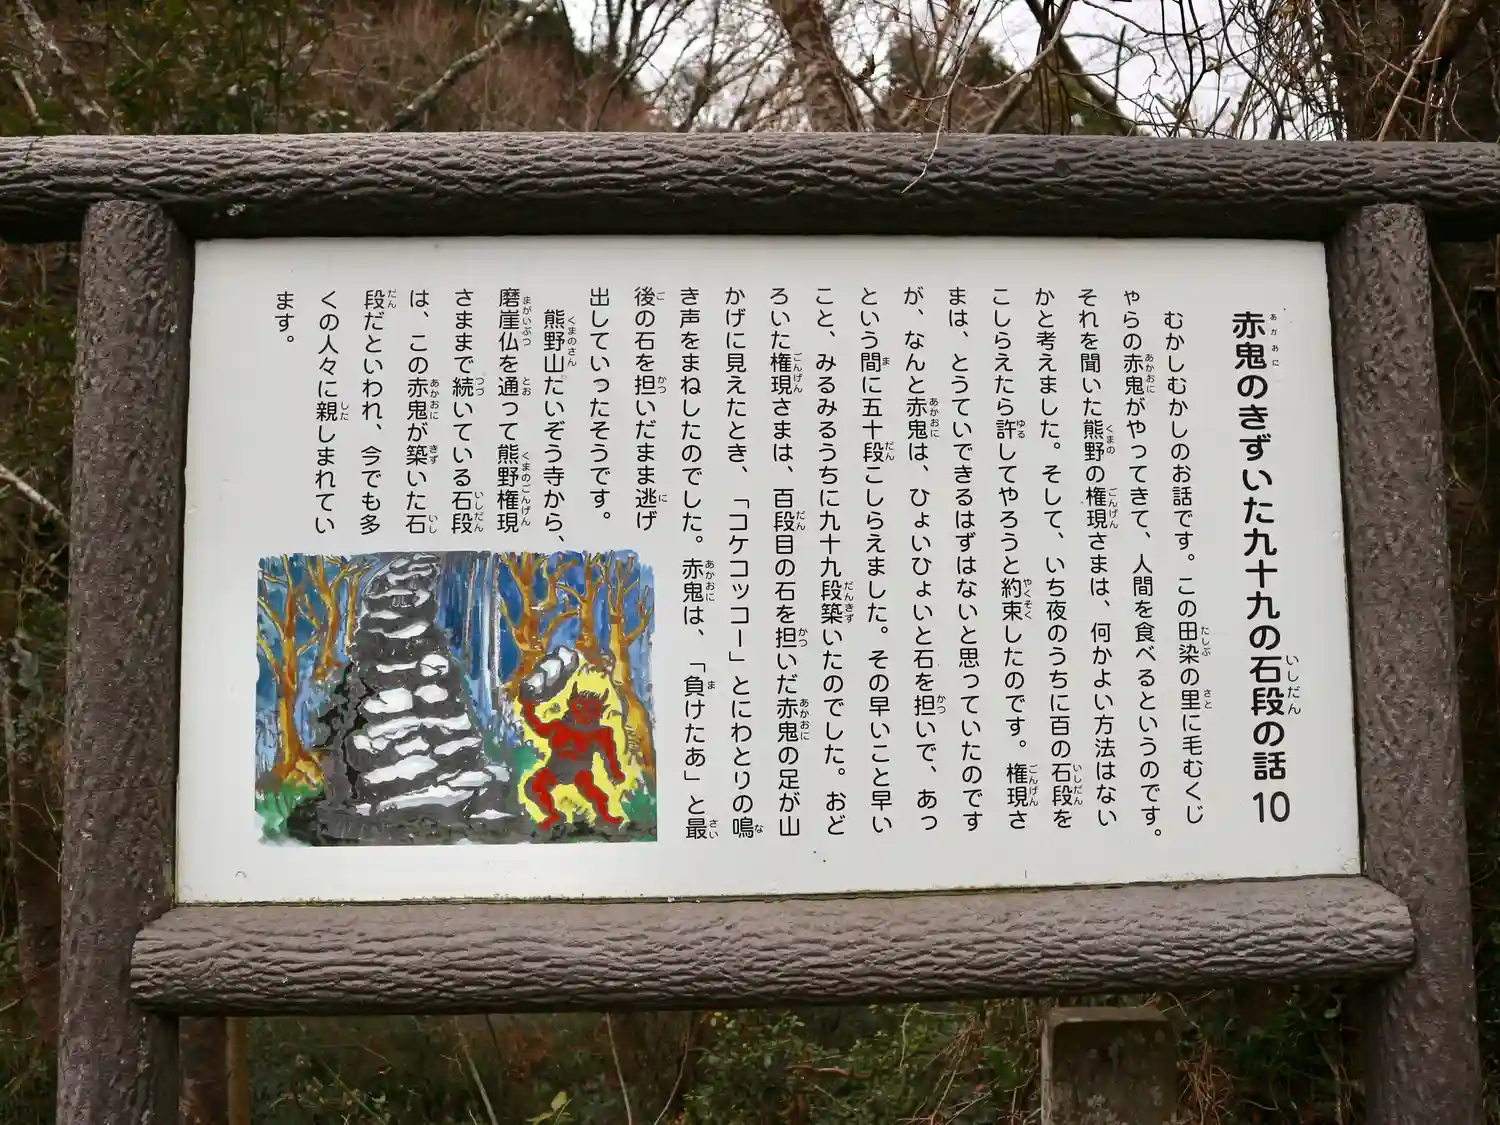 赤鬼のきずいた九十九の石段の話 10
むかしむかしのお話です。この田染の里に毛むくじ
ゃらの赤鬼がやってきて、人間を食べるというのです。
それを聞いた熊野の権現さまは、何かよい方法はない
かと考えました。そして、いち夜のうちに百の石段を
こしらえたら許してやろうと約束したのです。権現さ
まは、とうていできるはずはないと思っていたのです
が、なんと赤鬼は、ひょいひょいと石を担いで、あっ
という間に五十段こしらえました。その早いこと早い
こと、みるみるうちに九十九段築いたのでした。おど
ろいた権現さまは、百段目の石を担いだ赤鬼の足が山
かげに見えたとき、「コケコッコー」とにわとりの鳴
き声をまねしたのでした。赤鬼は、「負けたあ」と最
後の石を担いだまま逃げ
出していったそうです。
熊野山たいぞう寺から、
磨崖仏を通って熊野権現
さままで続いている石段
は、この赤鬼が築いた石
段だといわれ、今でも多
くの人々に親しまれてい
ます。